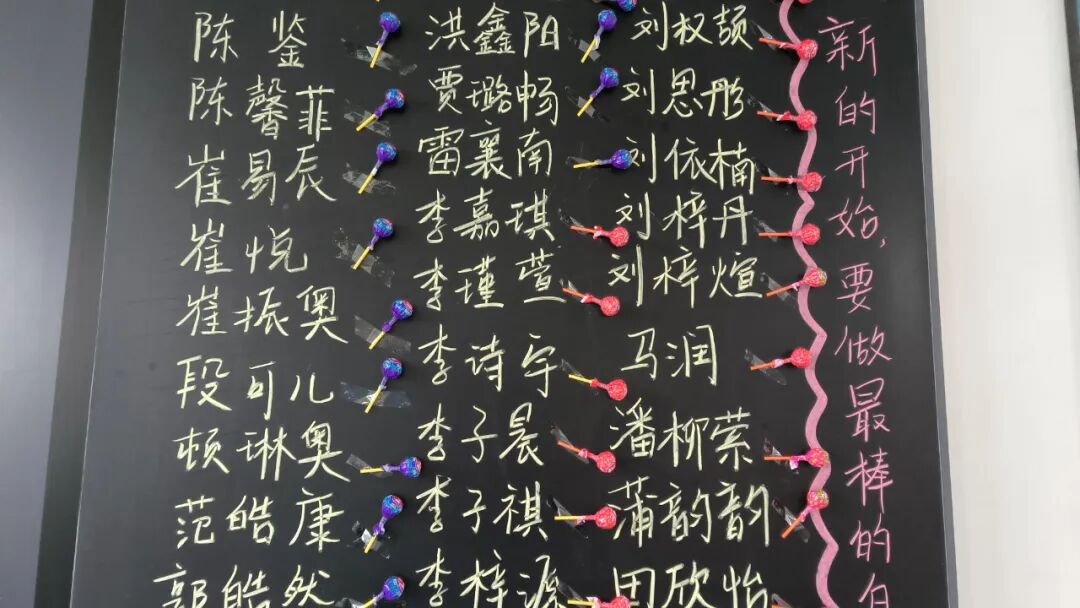 陈鉴
陈馨菲
崔易辰
崔悦
崔振奥
段可儿
顿琳奥
范皓康
郭皓然
洪鑫阳
贾璐畅
雷襄南
李嘉琪
李瑾萱
李诗宇
李子晨
李子祺
李梓源
刘权颉
刘思彤
刘依楠
刘梓丹
刘梓煊
马润
潘柳萦
蒲韵韵
田欣怡
新的开始,要做最棒的自